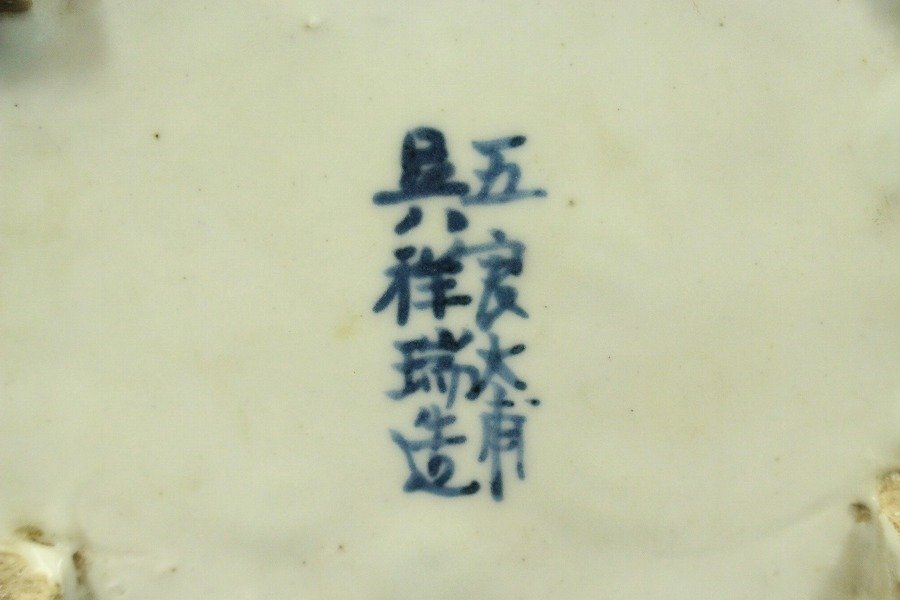 五良大甫
呉祥瑞造